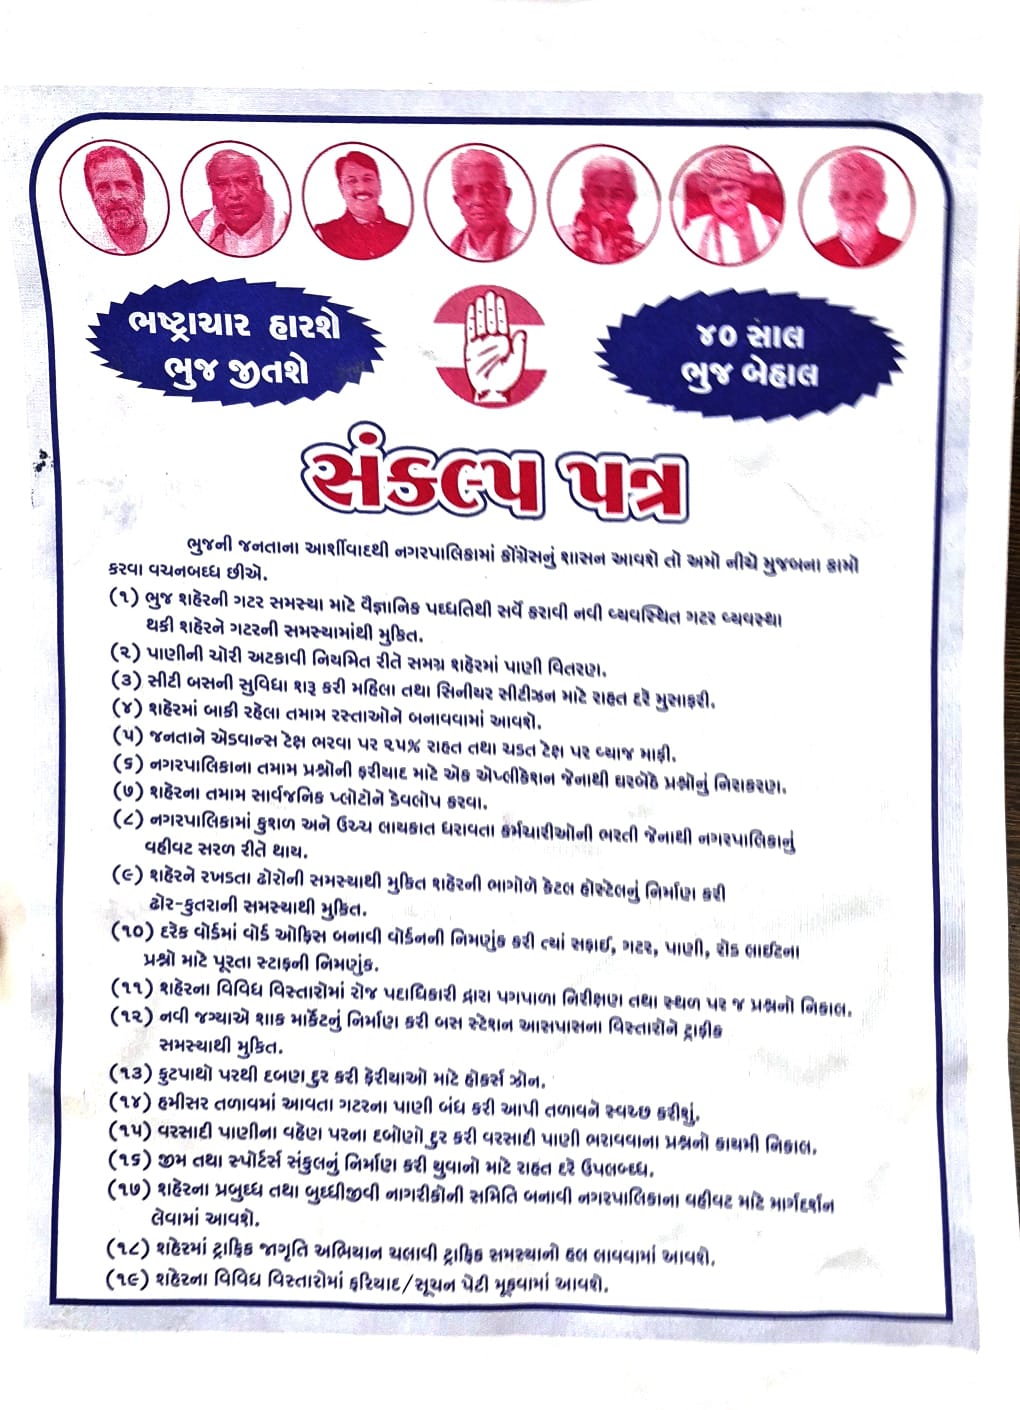 ભષ્ટ્રાચાર હારશે
ભુજ જીતશે
૪૦ સાલ
ભુજ બેહાલ
સંકલ્પ પત્ર
ભુજની જનતાના આર્શીવાદથી નગરપાલિકામાં કોંગ્રેસનું શાસન આવશે તો અમો નીચે મુજબના કામો
કરવા વચનબધ્ધ છીએ.
(૧) ભુજ શહેરની ગટર સમસ્યા માટે વૈજ્ઞાનિક પધ્ધતિથી સર્વે કરાવી નવી વ્યવસ્થિત ગટર વ્યવસ્થા
થકી શહેરને ગટરની સમસ્યામાંથી મુકિત.
(૨) પાણીની ચોરી અટકાવી નિયમિત રીતે સમગ્ર શહેરમાં પાણી વિતરણ.
(૩) સીટી બસની સુવિધા શરૂ કરી મહિલા તથા સિનીયર સીટીઝન માટે રાહત દરે મુસાફરી.
(૪) શહેરમાં બાકી રહેલા તમામ રસ્તાઓને બનાવવામાં આવશે.
(૫) જનતાને એડવાન્સ ટેક્ષ ભરવા પર ૨૫% રાહત તથા ચડત ટેક્ષ પર વ્યાજ માફી.
(૬) નગરપાલિકાના તમામ પ્રશ્નોની ફરીયાદ માટે એક એપ્લીકેશન જેનાથી ઘરબેઠે પ્રશ્નોનું નિરાકરણ.
(૭) શહેરના તમામ સાર્વજનિક પ્લોટોને ડેવલોપ કરવા.
(૮) નગરપાલિકામાં કુશળ અને ઉચ્ચ લાયકાત ધરાવતા કર્મચારીઓની ભરતી જેનાથી નગરપાલિકાનું
વહીવટ સરળ રીતે થાય.
(૯) શહેરને રખડતા ઢોરોની સમસ્યાથી મુકિત શહેરની ભાગોળે કેટલ હોસ્ટેલનું નિર્માણ કરી
ઢોર-કુતરાની સમસ્યાથી મુકિત.
(૧૦) દરેક વોર્ડમાં વોર્ડ ઓફિસ બનાવી વોર્ડનની નિમણુંક કરી ત્યાં સફાઈ, ગટર, પાણી, રોડ લાઈટના
પ્રશ્નો માટે પૂરતા સ્ટાફની નિમણુંક.
(૧૧) શહેરના વિવિધ વિસ્તારોમાં રોજ પદાધિકારી દ્વારા પગપાળા નિરીક્ષણ તથા સ્થળ પર જ પ્રશ્નનો નિકાલ.
(૧૨) નવી જગ્યાએ શાક માર્કેટનું નિર્માણ કરી બસ સ્ટેશન આસપાસના વિસ્તારોને ટ્રાફીક
સમસ્યાથી મુકિત.
(૧૩) ફુટપાથો પરથી દબાણ દુર કરી ફેરીયાઓ માટે હોકર્સ ઝોન.
(૧૪) હમીસર તળાવમાં આવતા ગટરના પાણી બંધ કરી આપી તળાવને સ્વચ્છ કરીશું.
(૧૫) વરસાદી પાણીના વહેણ પરના દબોણો દુર કરી વરસાદી પાણી ભરાવવાના પ્રશ્નનો કાયમી નિકાલ.
(૧૬) જીમ તથા સ્પોર્ટર્સ સંકુલનું નિર્માણ કરી યુવાનો માટે રાહત દરે ઉપલબ્ધ.
(૧૭) શહેરના પ્રબુધ્ધ તથા બુધ્ધીજીવી નાગરીકોની સમિતિ બનાવી નગરપાલિકાના વહીવટ માટે માર્ગદર્શન
લેવામાં આવશે.
(૧૮) શહેરમાં ટ્રાફિક જાગૃતિ અભિયાન ચલાવી ટ્રાફિક સમસ્યાનો હલ લાવવામાં આવશે.
(૧૯) શહેરના વિવિધ વિસ્તારોમાં ફરિયાદ/સૂચન પેટી મૂકવામાં આવશે.